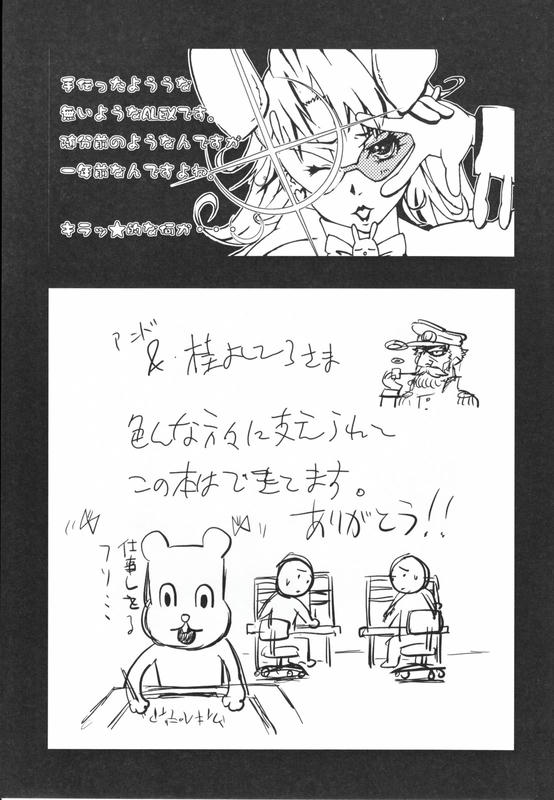 手伝ったようような
無いようなALEXです。
随分前のようなんですが
一年前なんですよね。
キラッ★的な何か・
アンド
&・桂よしひろさま
色んな方々に支えられて
この本はできてます。
ありがとう!!
仕事しをる
フリミミ